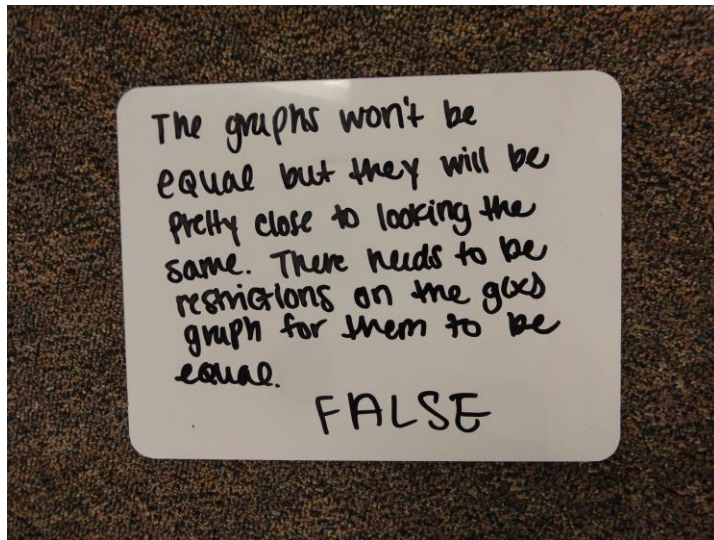 The graphs won't be
equal but they will be
pretty close to looking the
same. There needs to be
restrictions on the g(x)
graph for them to be
equal.
FALSE